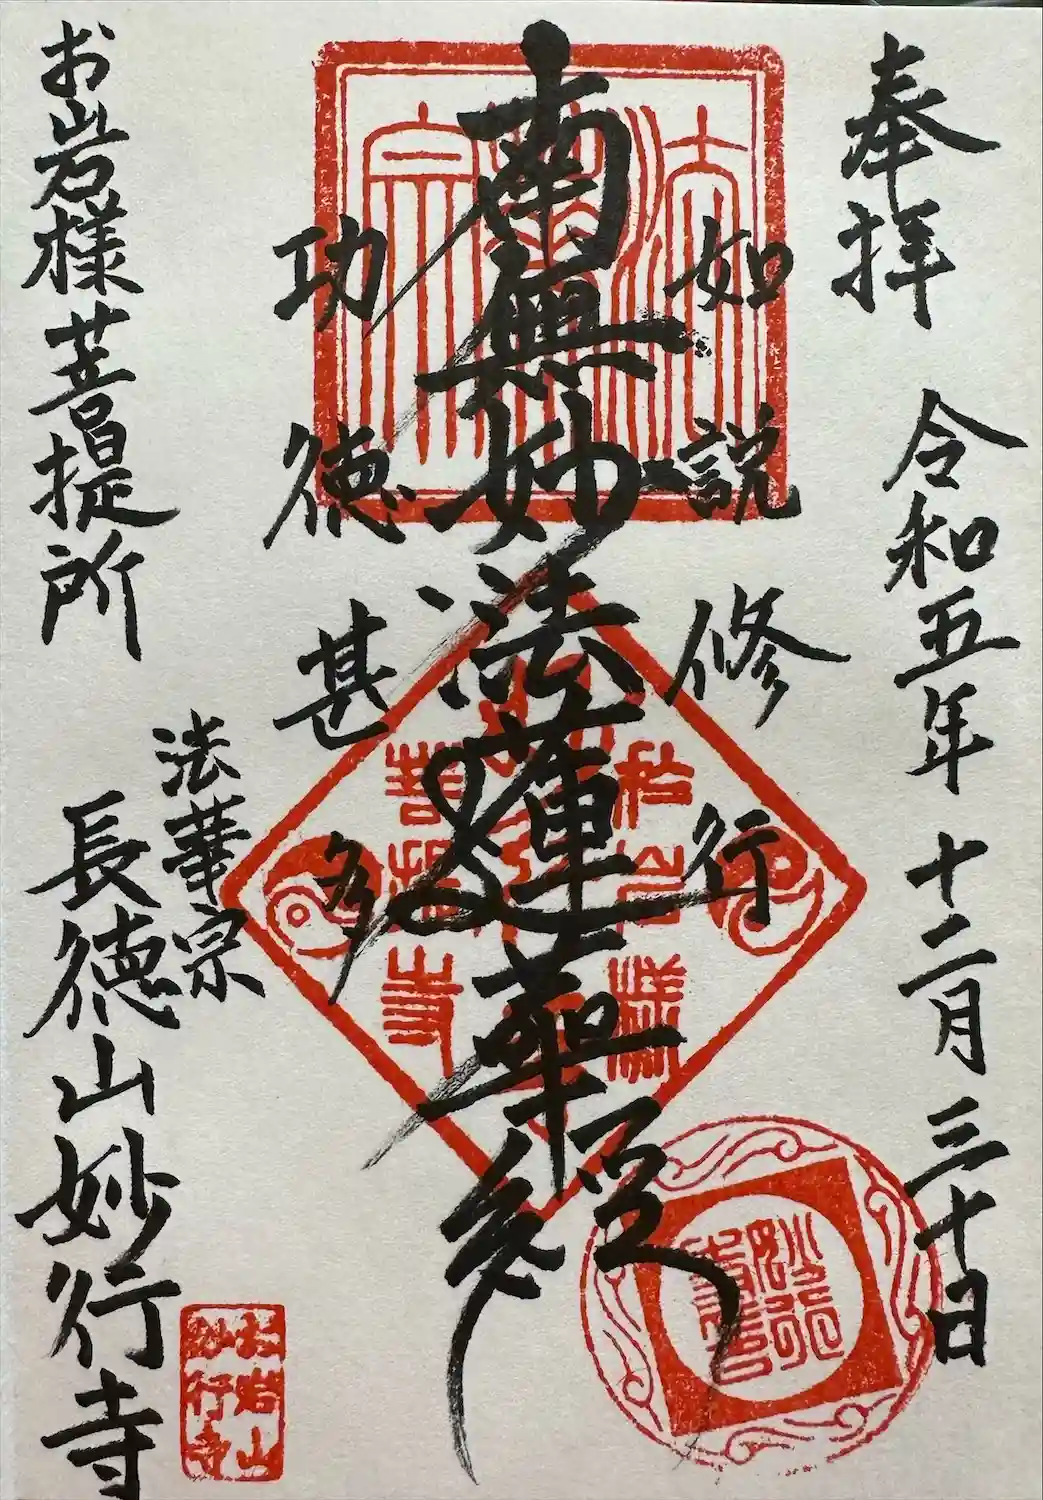 奉拝 令和五年 十二月 三十日
如説修行
南無妙法蓮華経
功徳甚多
お岩様菩提所
法華宗
長徳山妙行寺
法華宗
お岩様
菩提寺
妙行寺
お岩山
妙行寺